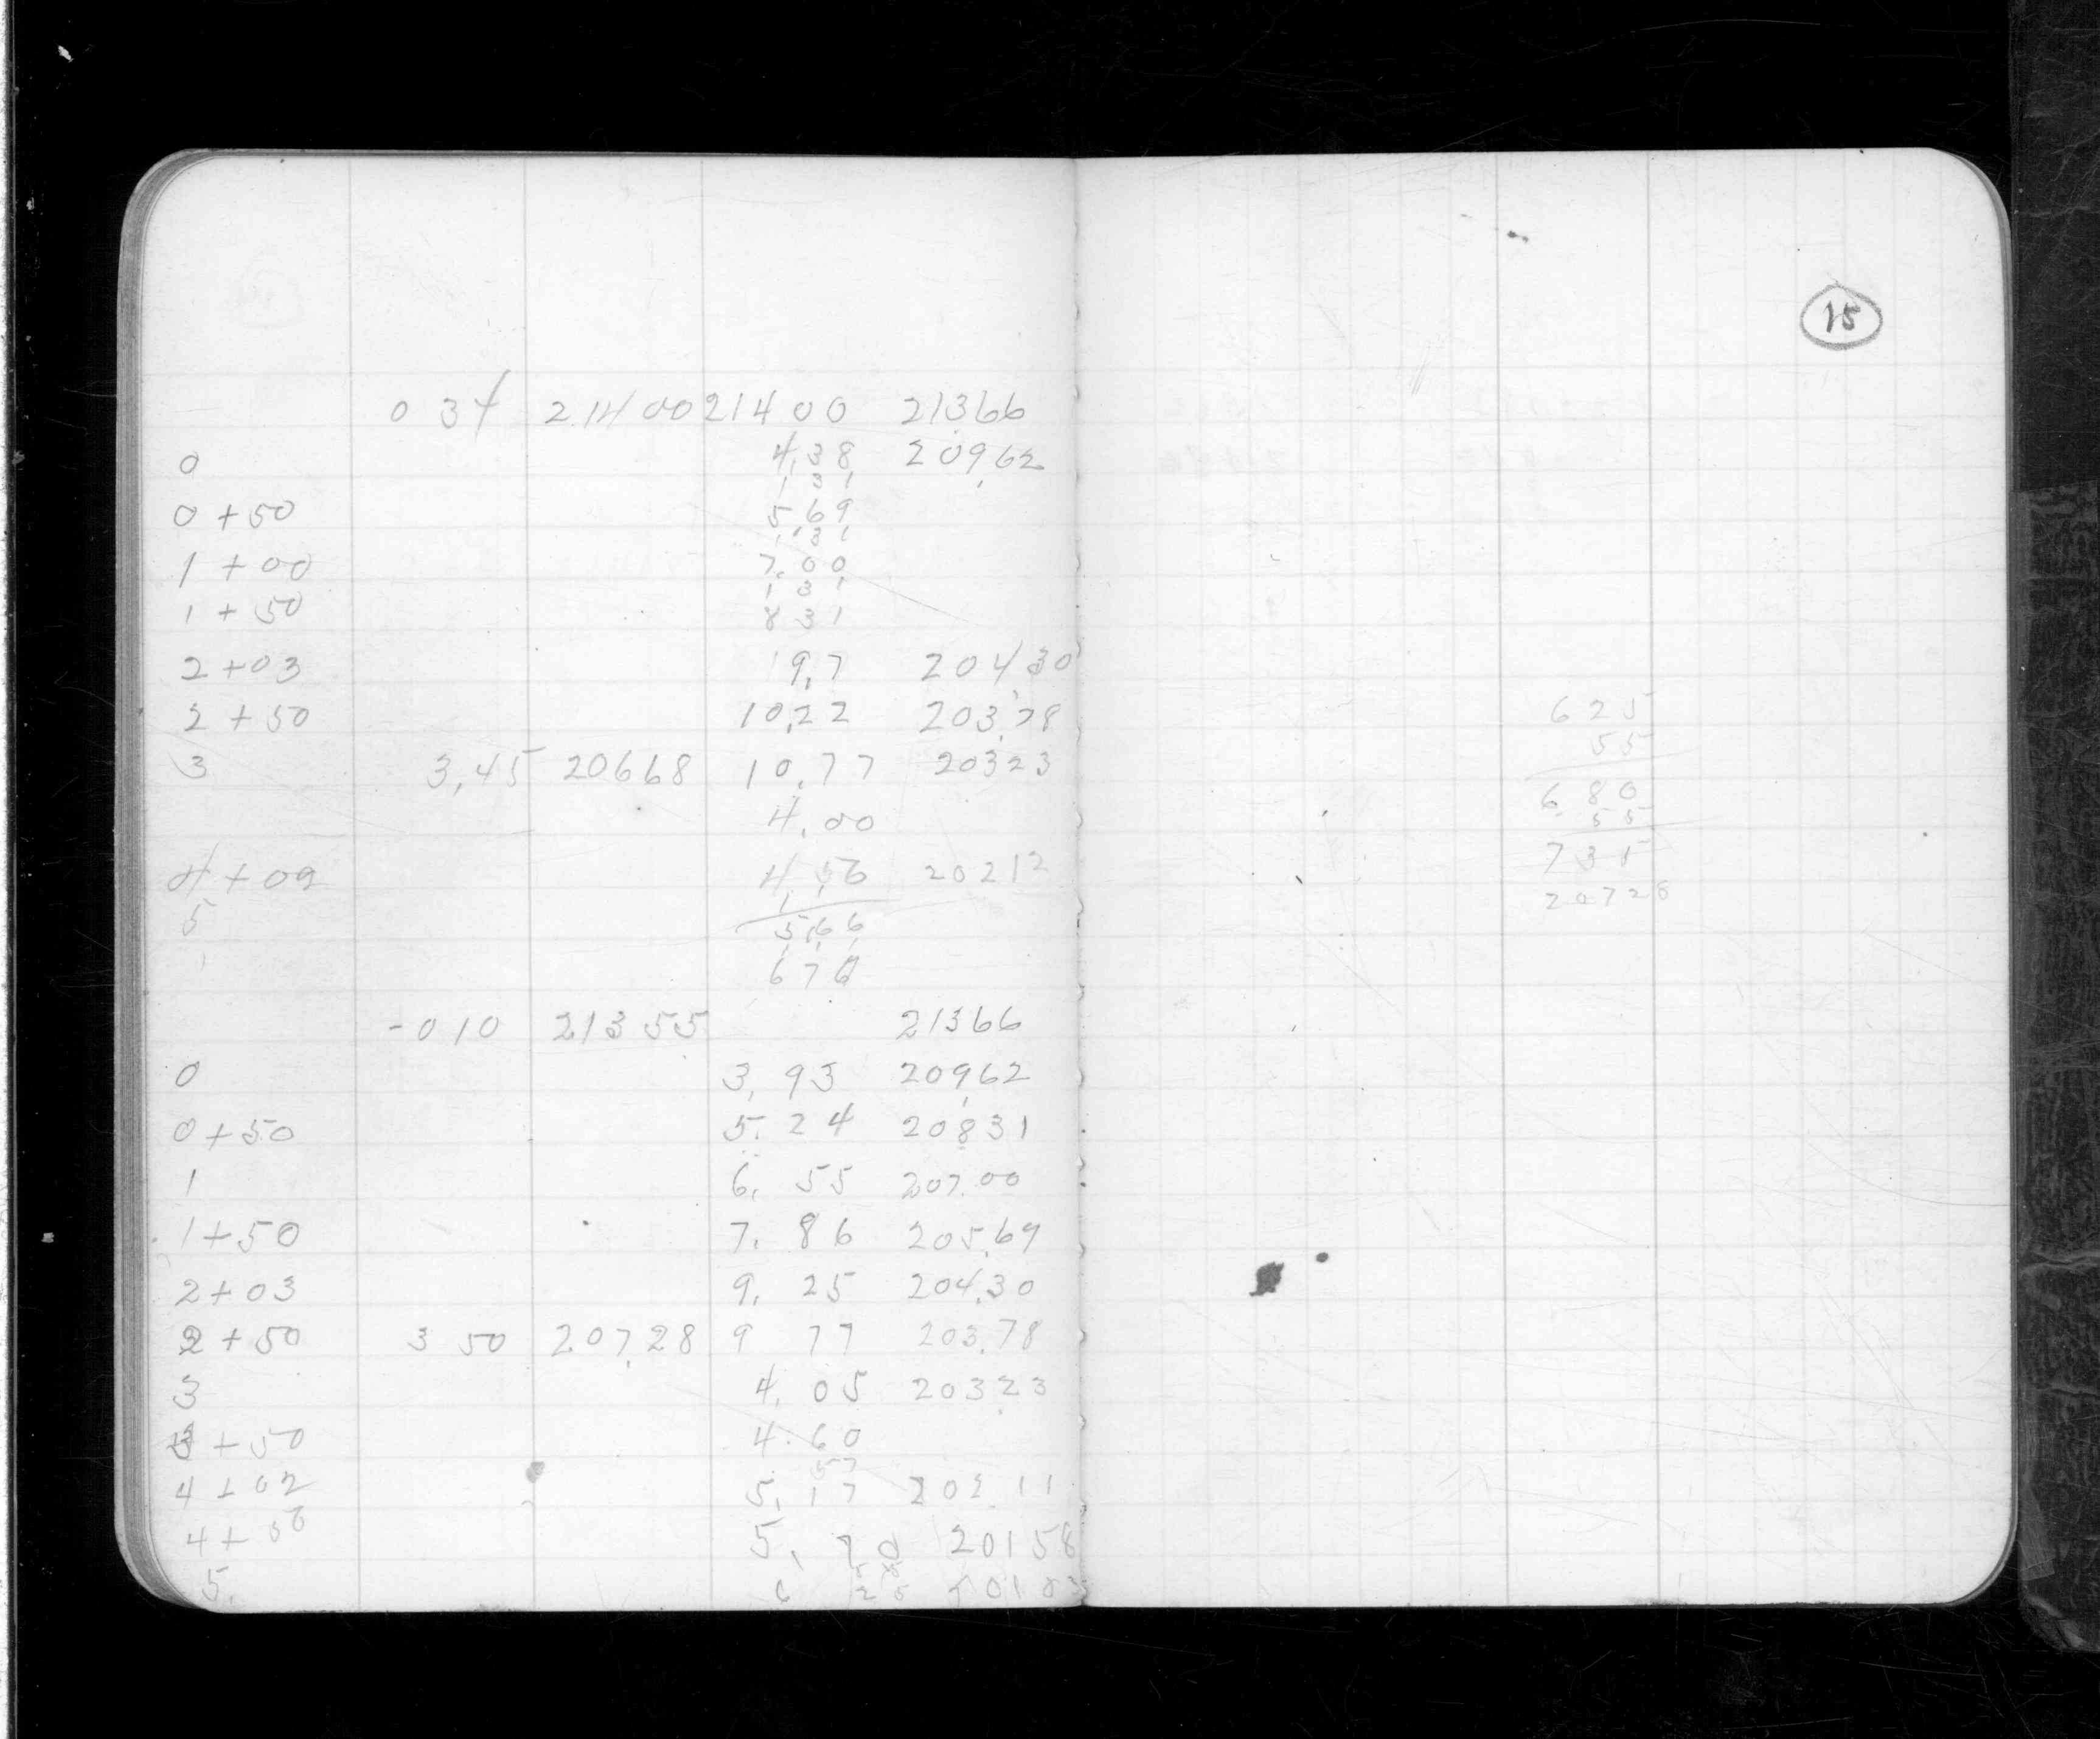 15
0 34 214 00 214 00 21366
0 4,38 20962
1 31
0 + 50 5,69
1,31
1 + 00 7.00
1 31
1 + 50 8 31
2 + 03 9,7 204 30
2 + 50 10,22 203,78
3 3,45 20668 10,77 20323
4,00
4 + 02 4 56 20212
5 5,66
6 76
- 0 10 213 55 21366
0 3, 93 209,62
0 + 50 5. 24 20831
1 6, 55 207.00
1 + 50 7, 86 205,69
2 + 03 9, 25 204,30
2 + 50 3 50 207,28 9 77 203,78
3 4, 05 20323
3 + 50 4.60
57
4 + 02 5, 17 202.11
4 + 50 5, 70 20158
5. 6 25
625
55
680
55
735
20728